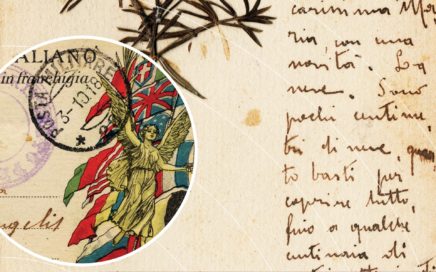 ALIANO
in franchigia
POSTA
3-10-18
ngelis
carissima Ma
ria, con una
novità. La
neve. Sono
pochi centime
tri di neve, quan
to basti per
coprire tutto,
fino a qualche
di